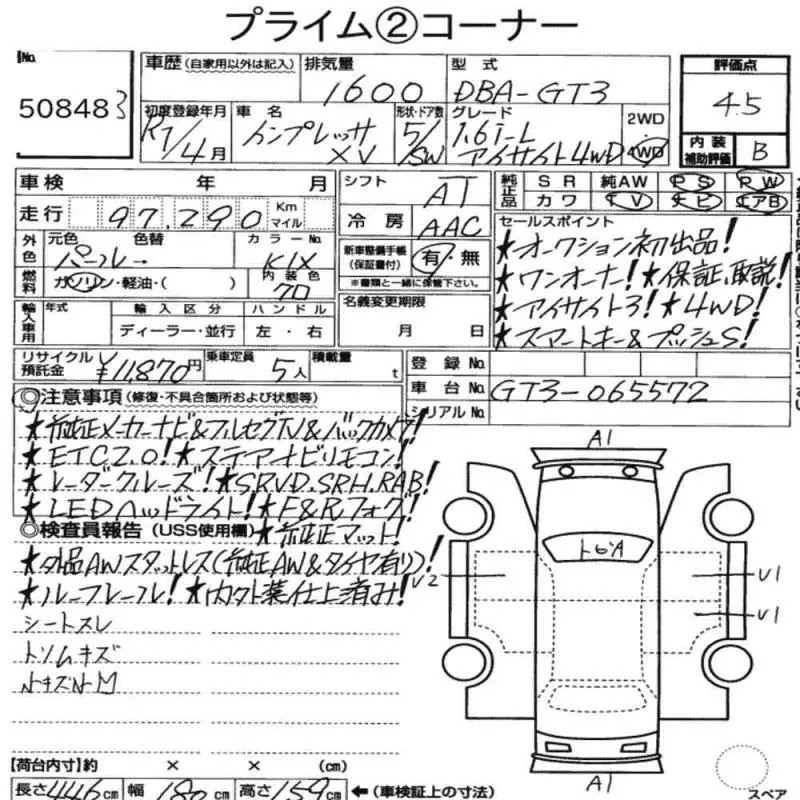 プライム②コーナー
No.
車歴(自家用以外は記入) 排気量 型式 評価点
50848 3 1600 DBA-GT3 4.5
初度登録年月 車名 形状・ドア数 グレード 2WD 4WD
R1/4月 インプレッサXV 5/SW 1.6i-L アイサイト4WD
内装補助評価 B
車検 年 月 シフト AT 純正品 SR 純AW PS PW
走行 97,290 Km マイル 冷房 AAC カワ TV ナビ エアB
外色 元色 色替 カラーNo. 新車整備手帳(保証書付) 有・無 セールスポイント
パープル→ K1X ※書類と一緒に保管下さい。 ★オークション初出品!
燃料 ガソリン・軽油・( ) 内装色 名義変更期限 ★ワンオーナー!★保証、取説!
輸入車用 年式 輸入区分 ハンドル 月 日 ★アイサイト3!★4WD!
ディーラー・並行 左・右 ★スマートキー&プッシュS!
リサイクル預託金 ¥11,870円 乗車定員 5人 積載量 t 登録No.
車台No. GT3-065572
シリアルNo.
◎注意事項(修復・不具合箇所および状態等)
★純正メーカーナビ&フルセグTV&バックカメラ!
★ETC2.0!★ステアナビリモコン!
★レーダークルーズ!★SRVD.SRH.RAB!
★LEDヘッドライト!★F&Rフォグ!
◎検査員報告(USS使用欄)★純正マット!
★社外品AWスタットレス(純正AW&タイヤ有り)!
★ルーフレール!★内外装仕上済み!
シートスレ
トリムキズ
小キズ小凹
A1
トビA
U2 U1
U1
A1
スペア
【荷台内寸】約 × × (cm)
長さ446cm 幅180cm 高さ159cm ←(車検証上の寸法)